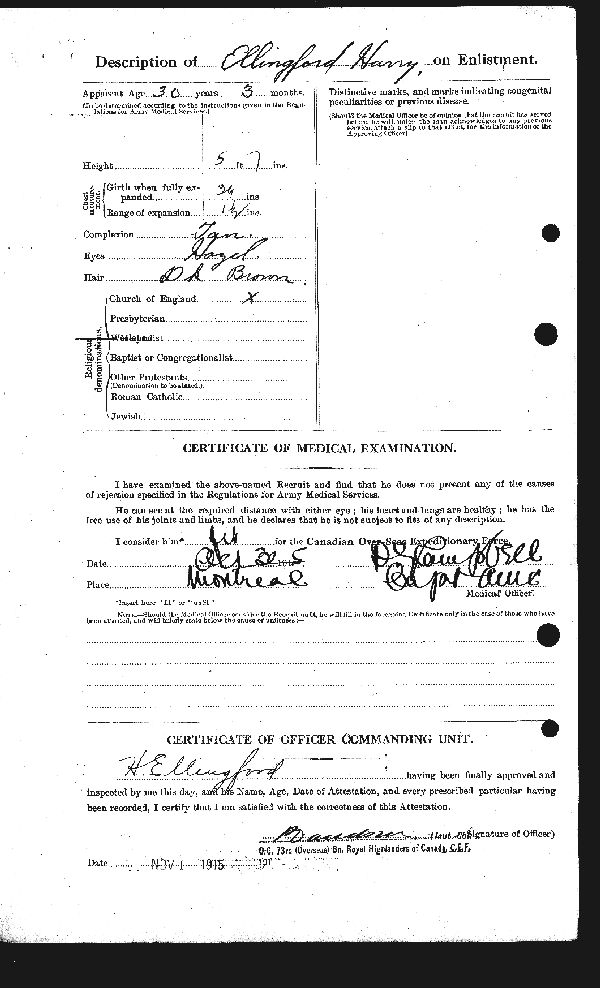 Description of Ellingford Harry, on Enlistment.
Apparent Age 30 years 3 months.
(To be determined according to the instructions given in the Regulations for Army Medical Services.)
Height 5 ft 7 ins.
Chest measurement.
Girth when fully expanded 36 ins
Range of expansion 1½ ins.
Complexion Tan.
Eyes Hazel.
Hair Dk Brown
Religious denominations.
Church of England X
Presbyterian
Wesleyan
Baptist or Congregationalist
Other Protestants
(Denomination to be stated.)
Roman Catholic
Jewish
Distinctive marks, and marks indicating congenital
peculiarities or previous disease.
(Should the Medical Officer be of opinion that the recruit has served
before, he will, unless the man acknowledges to any previous
service, attach a slip to that effect, for the information of the
Approving Officer).
CERTIFICATE OF MEDICAL EXAMINATION.
I have examined the above-named Recruit and find that he does not present any of the causes
of rejection specified in the Regulations for Army Medical Services.
He can see at the required distance with either eye; his heart and lungs are healthy; he has the
free use of his joints and limbs, and he declares that he is not subject to fits of any description.
I consider him* fit for the Canadian Over-Seas Expeditionary Force.
Date Oct 30 1915
Place Montreal
Medical Officer.
*Insert here "fit" or "unfit."
Note.—Should the Medical Officer consider the Recruit unfit, he will fill in the foregoing Certificate only in the case of those who have
been attested, and will briefly state below the cause of unfitness:—
CERTIFICATE OF OFFICER COMMANDING UNIT.
H Ellingford having been finally approved and
inspected by me this day, and his Name, Age, Date of Attestation, and every prescribed particular having
been recorded, I certify that I am satisfied with the correctness of this Attestation.
(Signature of Officer)
O.C. 73rd (Overseas) Bn. Royal Highlanders of Canada, C.E.F.
Date NOV 1 1915 191